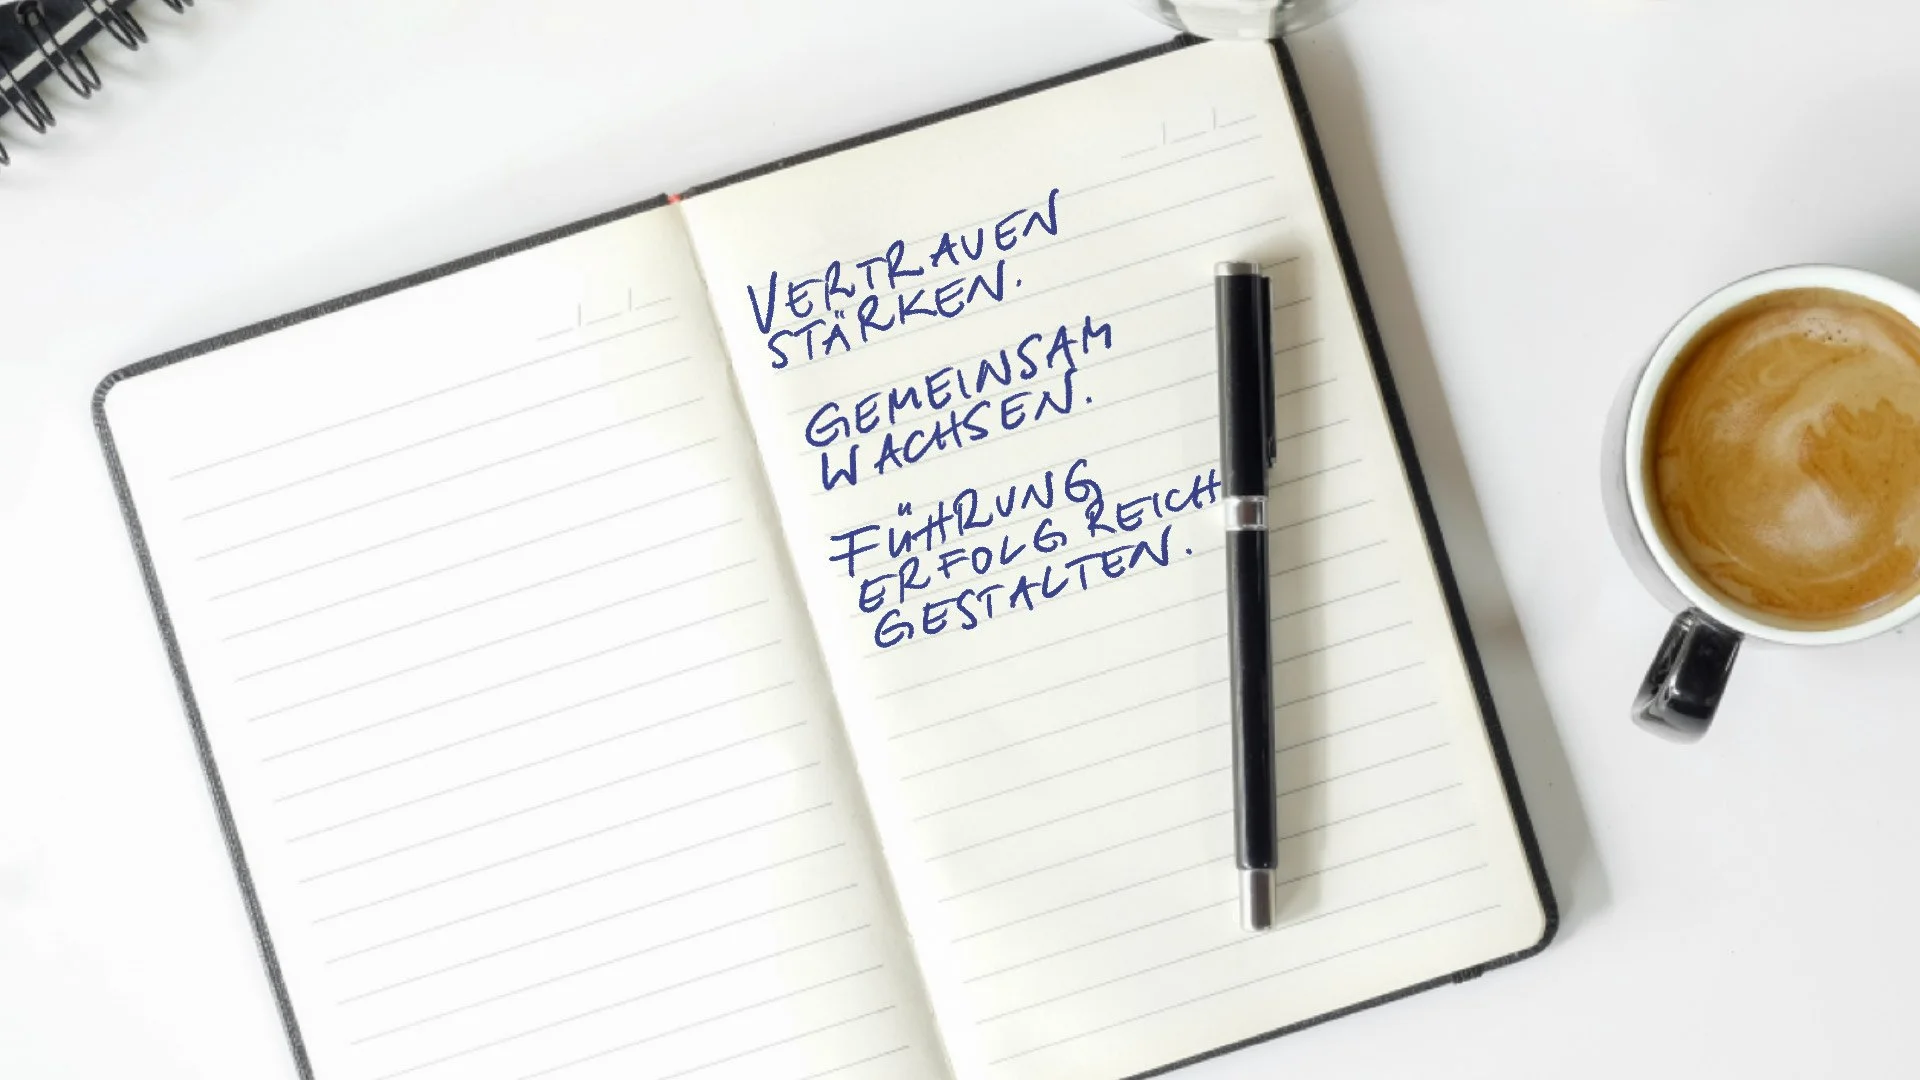 VERTRAUEN
STÄRKEN.
GEMEINSAM
WACHSEN.
FÜHRUNG
ERFOLGREICH
GESTALTEN.